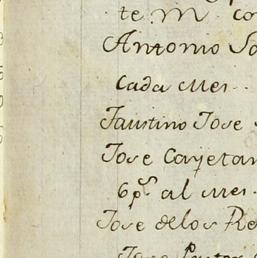 te M co
Antonio Sa
cada mes
Faustino Jose
Jose Cayetan
6 ps al mes
Jose delos Re
Jose